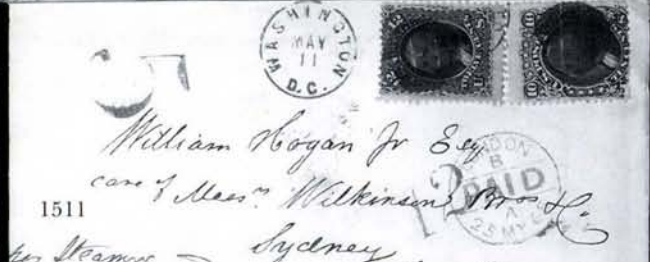 WASHINGTON
MAY
11
D.C.
12
10
William Hogan Jr Esq
care of Messrs Wilkinson Bros & Co.
LONDON
PAID
12
1511
Sydney
per Steamer